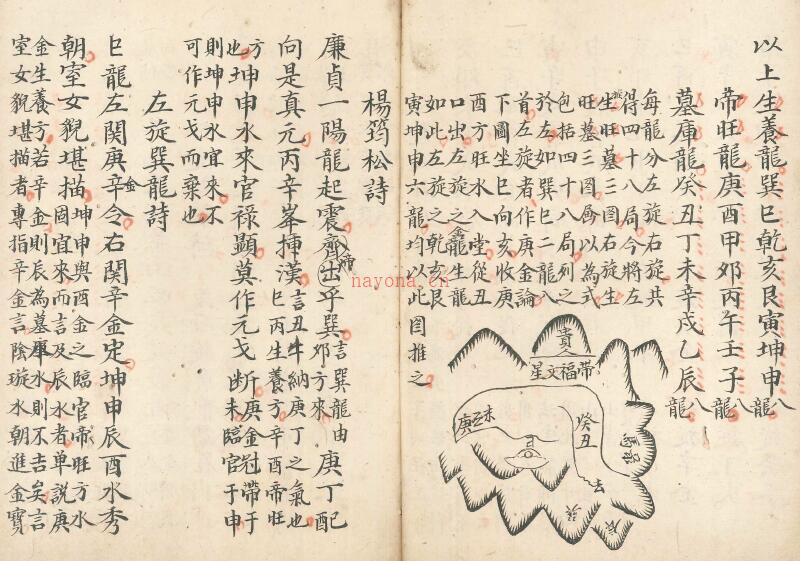 以上生養龍巽巳乾亥艮寅坤申八龍
帝旺龍庚酉甲卯丙午壬子八龍
墓庫龍癸丑丁未辛戌乙辰八龍
每龍分左旋右旋共
得四十八局今將左
旋生旺墓三图右旋生
旺墓三图畧以為式
包括四十八局列之
於左如巽巳二龍八
首左旋者作庚金論
下圖坐巳向亥收庚
酉方旺水入堂從丑
口出左旋之金龍生龍
如此左旋之乾亥艮
寅坤申六龍均以此图推之
貴人
帶福文星
庚
未
癸丑
馬
巳
亥
辰
nayona.cn
楊筠松詩
廉貞一陽龍起震齊出乎巽言巽龍由卯方來庚丁配
向是真元丙辛峯挿漢言丑牛納庚丁之氣也巳丙生養方辛酉帝旺
方也坤申水來官禄顯莫作元戈断庚金冠帶于未臨官于申
則坤申水宜來不可作元戈而棄也
左旋巽龍詩
巳龍左関庚辛金令右関辛金定坤申辰酉水秀
朝室女貌堪描坤申與酉金之臨官帝旺方水固宜來而言及辰水者單説庚
金生養方若辛金則辰為墓庫水則不吉矣言
室女貌堪描者專指辛金言陰璇水朝進金寶